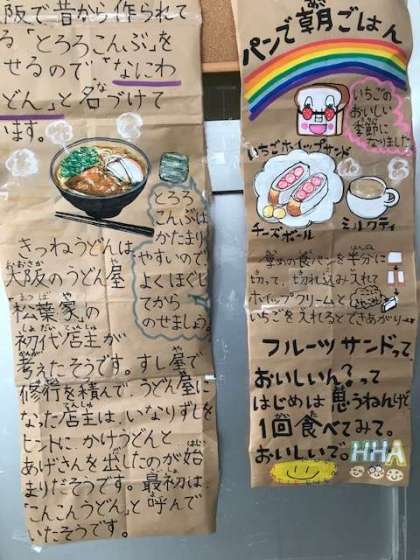 阪で昔から作られて
る「とろろこんぶ」を
せるので「なにわ
どん」と名づけて
います。
とろろ
こんぶは
かたまり
やすいので
よくほぐし
てから
のせましょう
きつねうどんは
大阪のうどん屋
「松葉家」の
初代店主が
考えたそうです。すし屋で
修行を積んで、うどん屋に
なった店主は、いなりずしを
ヒントに、かけうどんと
あげさんを出したのが始
まりだそうです。最初は
「こんこんうどん」と呼んで
いたそうです。
パンで朝ごはん
いちごの
おいしい
季節に
なりました
いちごホイップサンド
チーズボール
ミルクティ
厚めの食パンを半分に
切って、切れ込み入れて
ホイップクリームと
いちごを入れるとできあがり
フルーツサンドって
おいしいん?って
はじめは思うねんけど
1回食べてみて。
おいしいで。
HHA